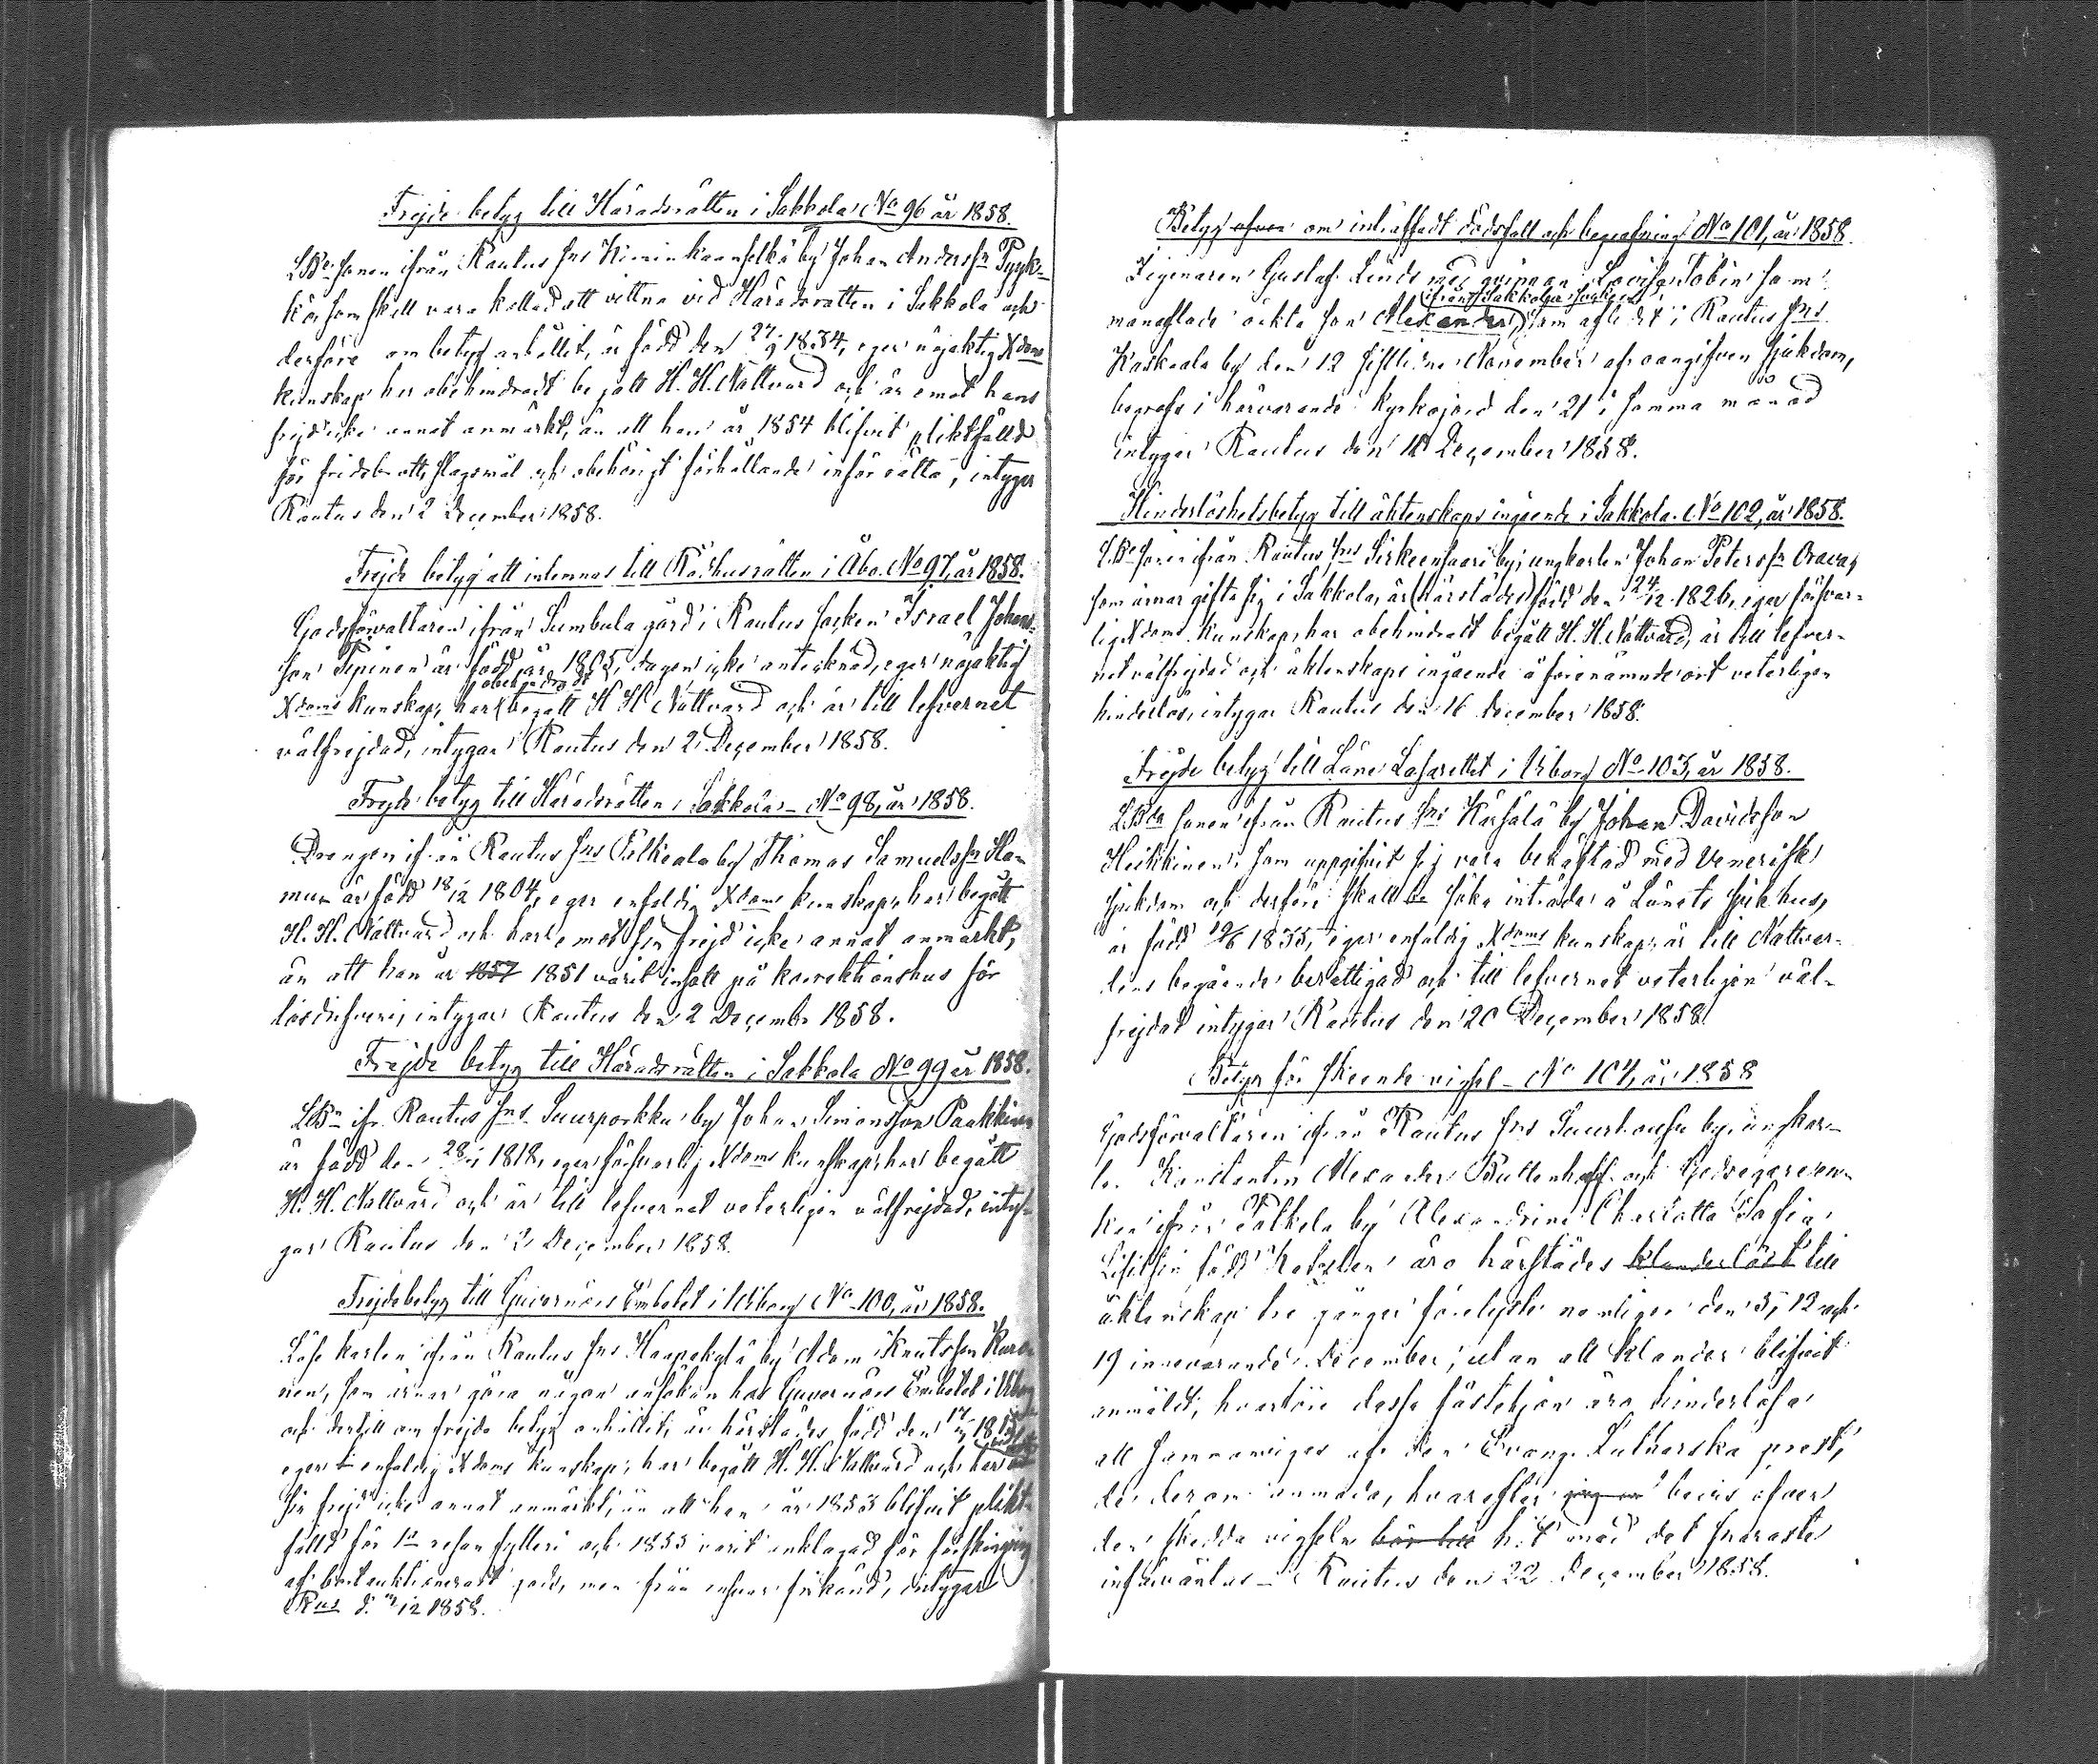 Frejde betyg till Häradsrätten i Sakkola No 96 år 1858.
LBde sonen ifrån Rautus Sns Kiiminkaanselkä by Johan Anderssn Pyyk-
kö, som skall vara kallad att vittna vid Häradsrätten i Sakkola och
derföre om betyg anhållit, är född den 27/9 1834, eger nöjaktig Xdoms
kunskap har obehindradt begått H. H. Nattvard och är emot hans
frejd icke annat anmärkt, än att han år 1854 blifvit pliktfälld
för fridsbrott, slagsmål och obehörigt förhållande inför rätta, intygar
Rautus den 2 December 1858.
Frejde betyg att inlemnas till Rådhusrätten i Åbo. No 97, år 1858.
Godsförvaltaren ifrån Sumbula gård i Rautus socken Israel Johans-
son Pipinen är född år 1805, dagen icke antecknad, eger nöjaktig
obehindradt
Xdoms kunskap, har begått H H Nattvard och är till lefvernet
välfrejdad, intygar Rautus den 2 December 1858.
Frejde betyg till Häradsrätten i Sakkola No 98, år 1858.
Drengen ifrån Rautus Sns Palkeala by Thomas Samuelssn Ha-
mun är född 18/12 1804, eger enfaldig Xdoms kunskap, har begått
H. H. Nattvard och har emot sin frejd icke annat anmärkt,
än att han år 1857 1851 varit insatt på korrektionshus för
lösdrifveri, intygar Rautus den 2 Decembr 1858.
Frejde betyg till Häradsrätten i Sakkola No 99 år 1858.
LBn ifr. Rautus Sns Suurporkku by Johan Simonsson Paukkunen
är född den 28/1 1818, eger försvarlig Xdoms kunskap, har begått
H. H. Nattvard och är till lefvernet veterligen välfrejdad, inty-
gar Rautus den 2 December 1858.
Frejdebetyg till Guvernörs Embetet i Wiborg No 100, år 1858.
Löse karlen ifrån Rautus Sns Haapakylä by Adam Knutsson
nen, som ärnar göra någon ansökan hos Guvernörs Embetet i Wiborg
och dertill om frejde betyg anhållit, är härstädes född den
eger enfaldig Xdoms kunskap, har begått H. H. Nattvard och har
sin frejd icke annat anmärkt, än att han år 1853 blifvit plikt-
fälld för 1a resan fylleri och 1855 varit anklagad för förskingring
af bortauktionerad gods, men från ansvar frikänd, intygar
Rus d. /12 1858.
Betyg öfver om inträffadt dödsfall och begrafning No 101, år 1858.
Zigenaren Gustaf Linds med qvinnan Lovisa Tobin sam-
ifrån Sakkola socken
manaflade oäkta son Alexander, som aflidit i Rautus Sns
Kaskaala by den 12 sistlidne November af oangifven sjukdom,
begrafs i härvarande kyrkojord den 21 i samma månad
intygar Rautus den 10 December 1858.
Hinderlöshetsbetyg till äktenskaps ingående i Sakkola. No 102, år 1858.
LBde sonen ifrån Rautus Sns Sirkeensaari by, ungkarlen Johan Peterssn Orava,
som ärnar gifta sig i Sakkola, är härstädes född den 24/12 1826, eger försvar-
lig Xdoms kunskap, har obehindradt begått H. H. Nattvard, är till lefver-
net välfrejdad och äktenskaps ingående å förenämnde ort veterligen
hinderlös, intygar Rautus den 16 December 1858.
Frejde betyg till Läns Lasarettet i Wiborg No 103, år 1858.
LBde sonen ifrån Rautus Sns Kärsälä by Johan Davidsson
Heikkinen, som uppgifvit sig vara behäftad med Venerisk
sjukdom och derföre skall söka inträde å Länets sjukhus,
är född 1835, eger enfaldig Xdoms kunskap, är till Nattvar-
dens begående berättigad och till lefvernet veterligen väl-
frejdad intygar Rautus den 20 December 1858
Betyg för skeende vigsel No 104, år 1858
Godsförvaltaren ifrån Rautus Sns Suurhousu by, ungkar-
len Konstantin Alexander Buttenhoff och Godsegareen-
kan ifrån Palkela by Alexandrine Charlotta Sofia
född äro härstädes klanderlöst till
äktenskap tre gånger förelyste nemligen den 5, 12 och
19 innevarande December, utan att klander blifvit
anmäldt, hvarföre dessa fästehjon äro hinderlösa
att sammanvigas af den Evang. Lutherska prest,
de derom anmoda, hvarefter bevis öfver
den skedda vigseln bör till hit med det snaraste
införväntas Rautus den 22 December 1858.